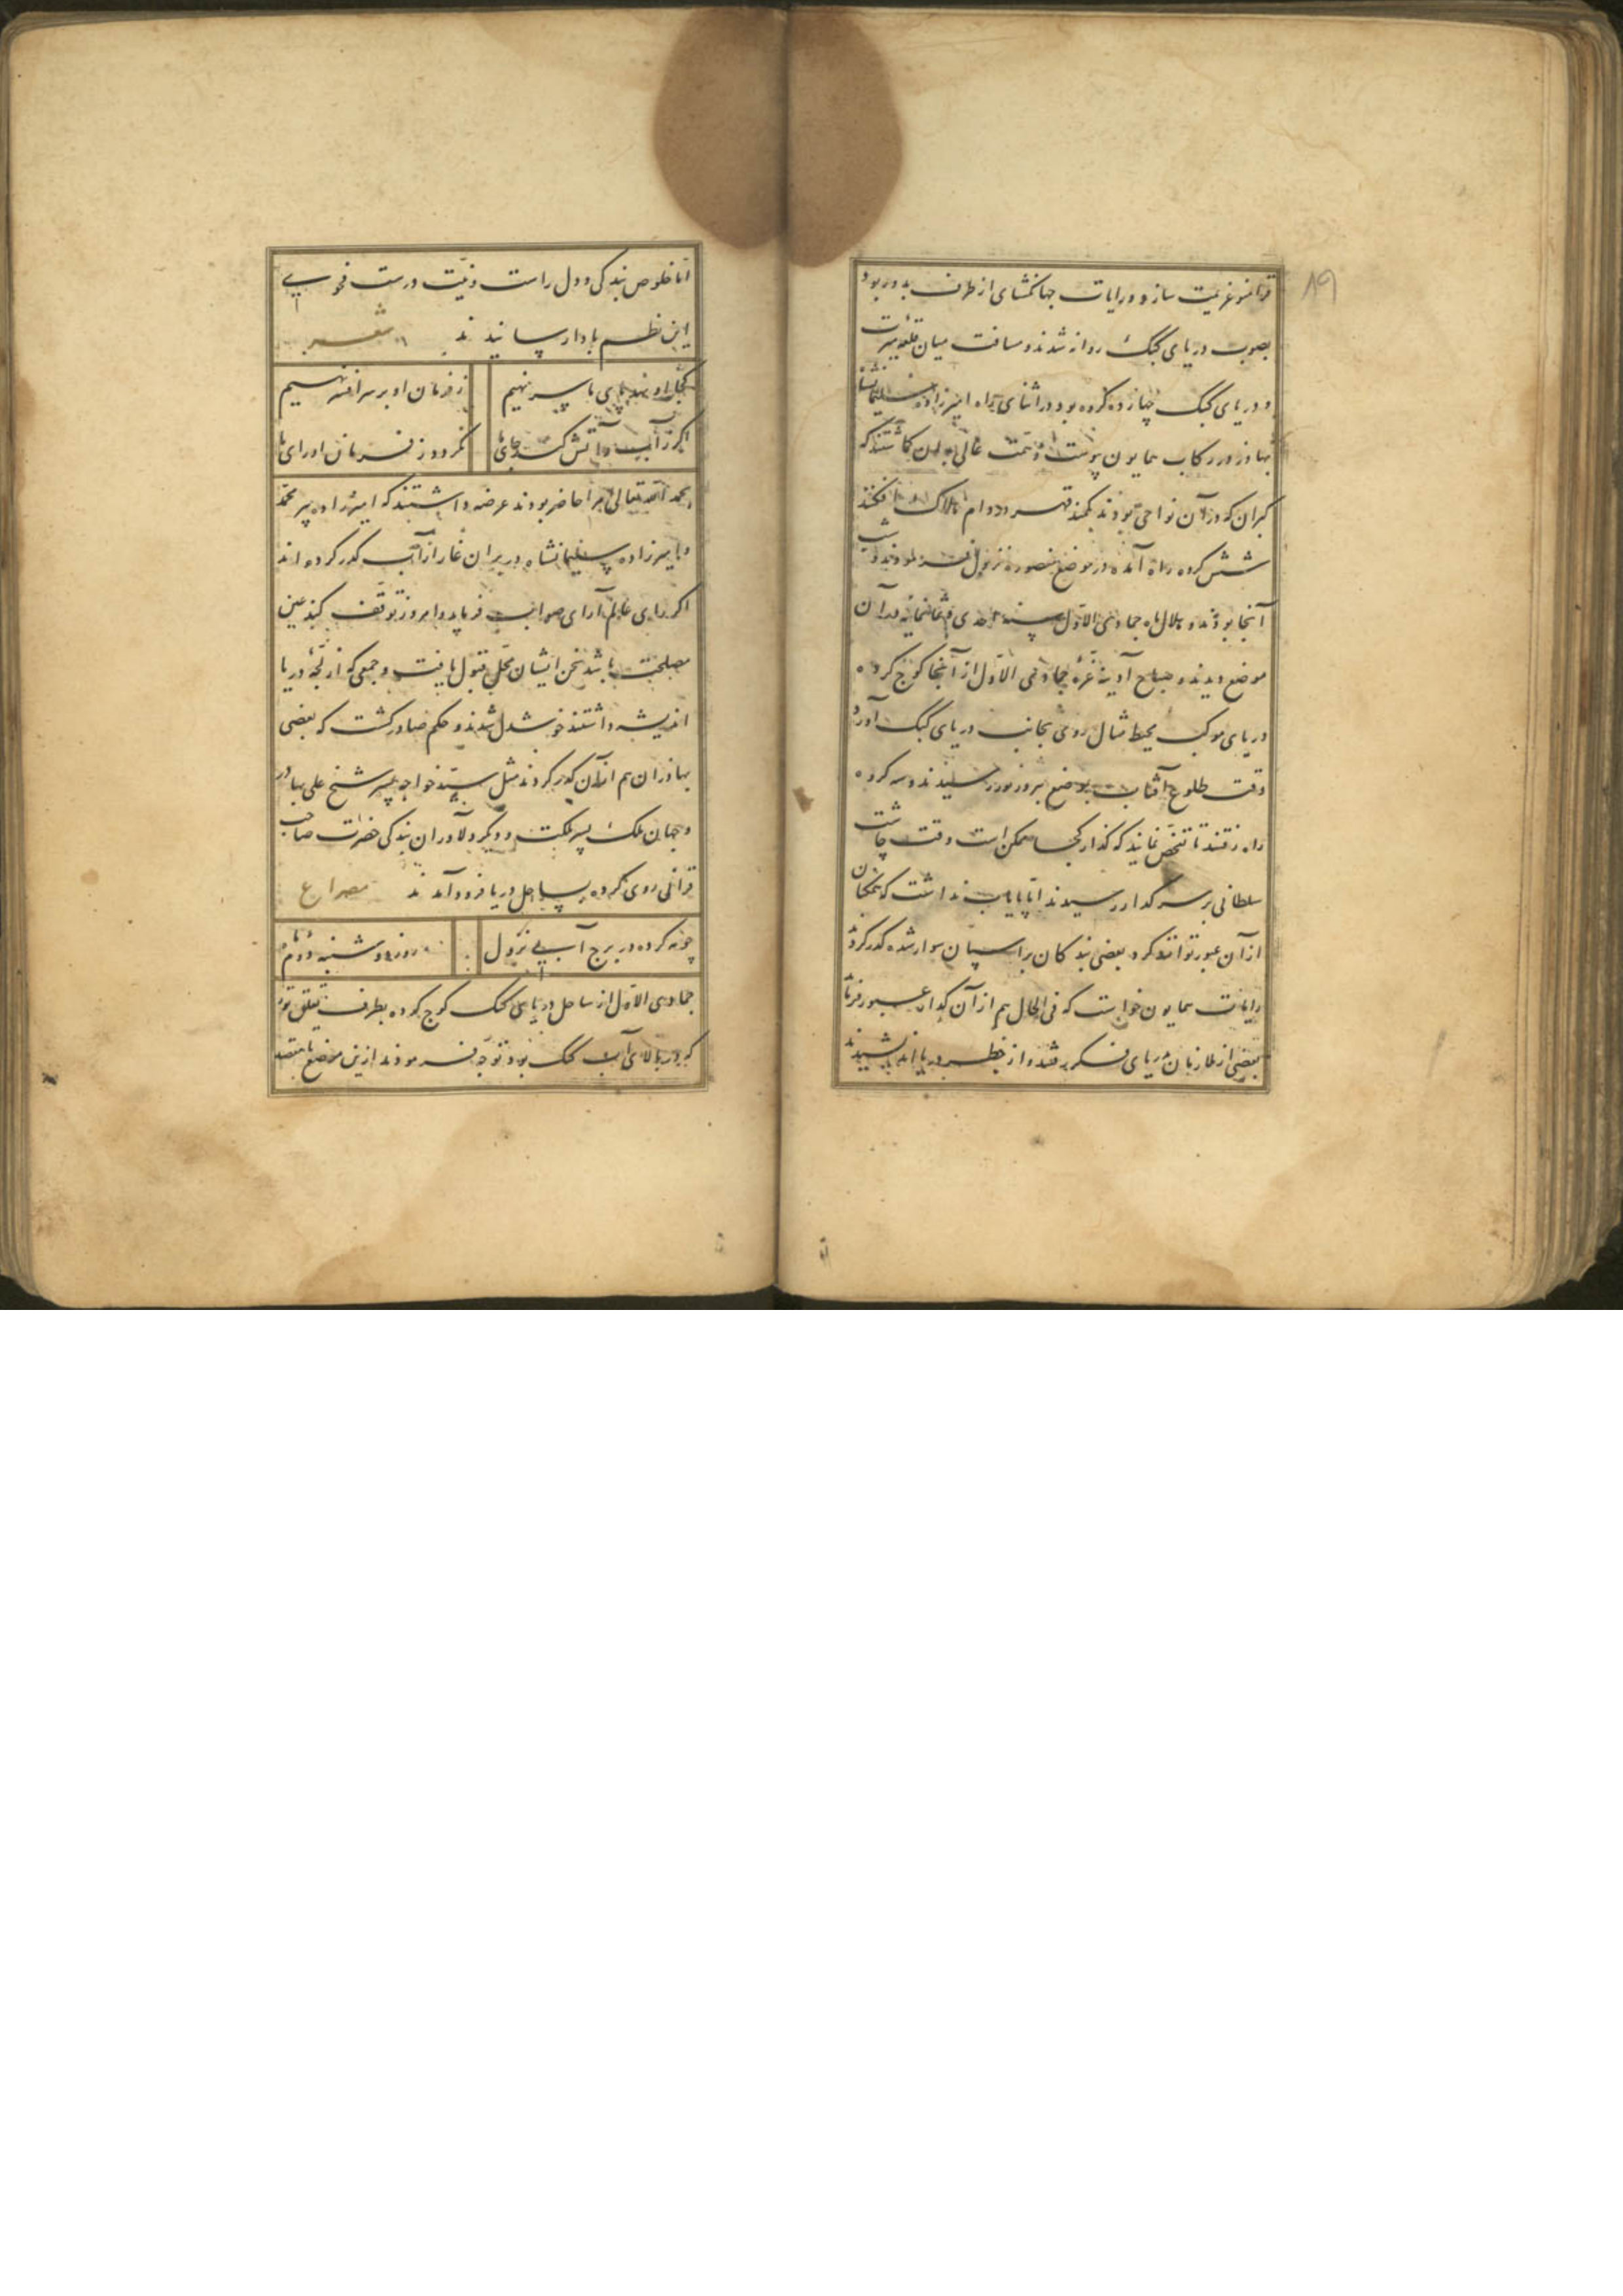 قراسو عزیمت سازد و رایات جهانگشای از طرف بدور بود
بصوب دریای کنک روانه شدند و مسافت میان قلعه میرت
و دریای کنک چهارده کروه بود در اثنای راه امیرزاده سلیمانشاه
بهادر در رکاب همایون پیوست و همت عالی بدان کماشتند که
کبران که در آن نواحی بودند بکمند قهر و دام هلاک افکنند
شش کروه راه آمده در موضع منصوره نزول فرمودند و شب
آنجا بودند و هلال ماه جمادی الاول سنه احدی و ثمانمایه در آن
موضع دیدند و صباح آدینه غره جمادی الاول از آنجا کوچ کرده
دریای موکب محیط مثال روی بجانب دریای کنک آورد
وقت طلوع آفتاب بموضع بیروزنور رسیدند و سه کروه
راه رفتند تا تفحص نمایند که کذار کجا ممکن است وقت چاشت
سلطانی بر سر کدار رسیدند اما پایاب نداشت که همکان
از آن عبور توانند کرد بعضی بندکان بر اسپان سوار شده کدر کردند
رایات همایون خواست که فی الحال هم از آن کدار عبور فرماید
بعضی از ملازمان دریای فکر رفتند و از خطر دریا اندیشیدند
اما خلوص بندکی و دل راست و نیت درست فحوای
این نظم بادا رسانیدند شعر
کجا او نهد پای ما سر نهیم
ز فرمان او بر سر افسر نهیم
اکر ز آب و آتش کند جای ما
نکردد ز فرمان او رای ما
بحمد الله تعالی امرا حاضر بودند عرضه داشتند که امیرزاده پیر محمد
و امیرزاده سلیمانشاه در بران غار از آب کدر کرده اند
اکر رای عالم آرای صواب فرماید و امروز توقف کند عین
مصلحت باشد سخن ایشان محل قبول یافت و جمعی که از لجه دریا
اندیشه داشتند خوشدل شدند و حکم صادر کشت که بعضی
بهادران هم از آن کدر کردند مثل سید خواجه پسر شیخ علی بهادر
و جهان ملک پسر ملکت و دیکر دلاوران بندکی حضرت صاحب
قرانی روی کرده بساحل دریا فرود آمدند مصراع
چو مه کرده در برج آبی نزول
روز دوشنبه دوم ماه
جمادی الاول از ساحل دریای کنک کوچ کرده بطرف تغلق پور
که در بالای آب کنک بود توجه فرمودند از این موضع تا مقصد